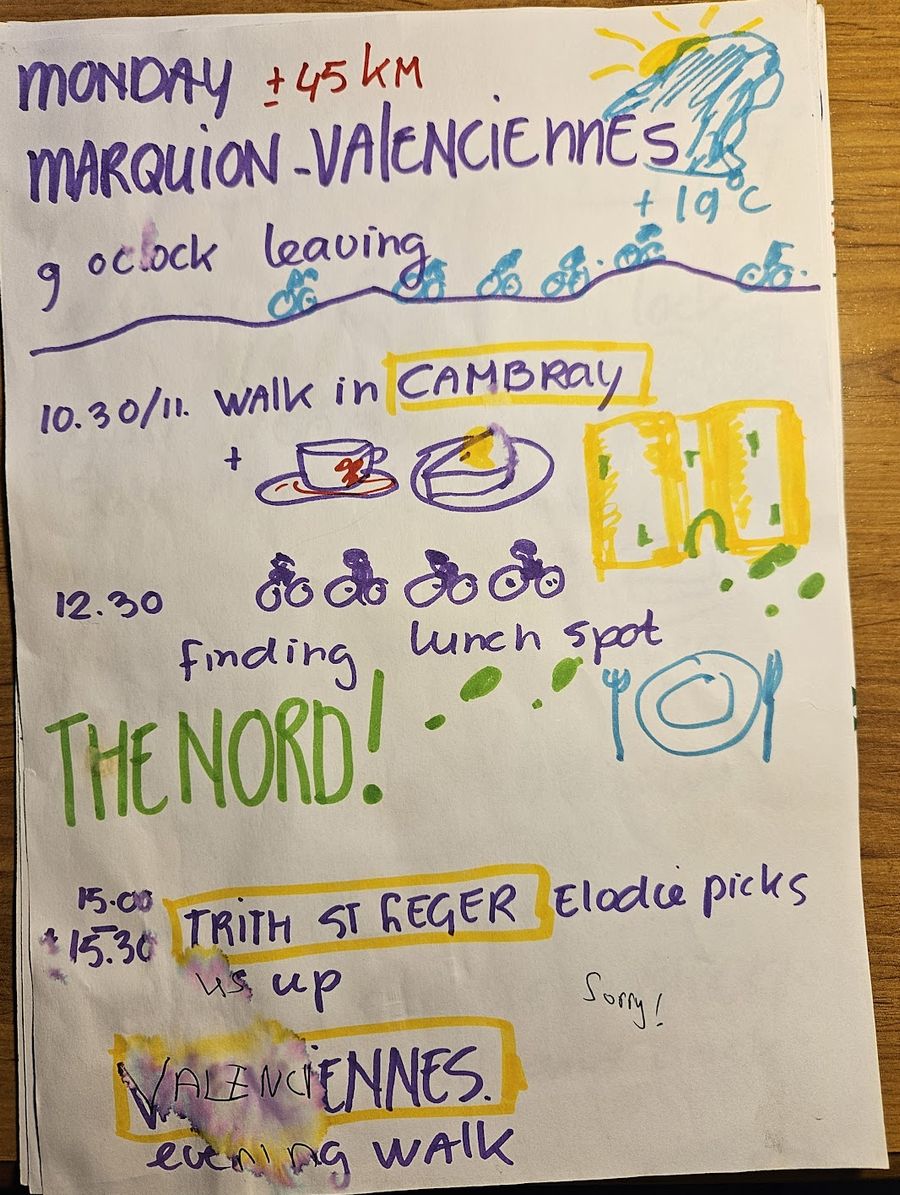 MONDAY ±45 KM
MARQUION-VALENCIENNES
+19°C
9 oclock leaving
10.30/11. WALK in CAMBRAY
+
12.30
finding lunch spot
THE NORD!
15.00
± 15.30 TRITH ST LEGER Elodie picks
us up
Sorry!
VALENCIENNES.
evening WALK